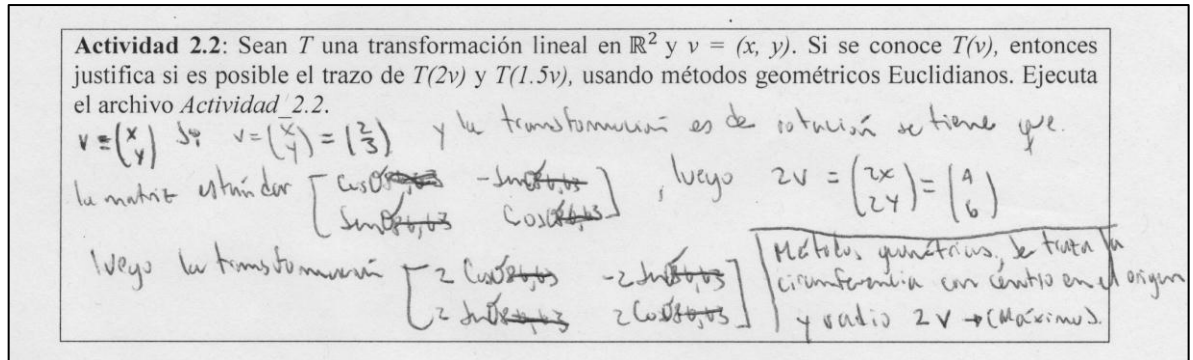 Actividad 2.2: Sean T una transformación lineal en ℝ² y v = (x, y). Si se conoce T(v), entonces
justifica si es posible el trazo de T(2v) y T(1.5v), usando métodos geométricos Euclidianos. Ejecuta
el archivo Actividad_2.2.
v = (x y) Si v = (x y) = (2 3) y la transformación es de rotación se tiene que.
la matriz estándar [Cosθ -Senθ Senθ Cosθ], luego 2v = (2x 2y) = (4 6)
luego la transformación [2 Cosθ -2 Senθ 2 Senθ 2 Cosθ]
Métodos geométricos, se traza la
circunferencia con centro en el origen
y radio 2v → (Máximo).